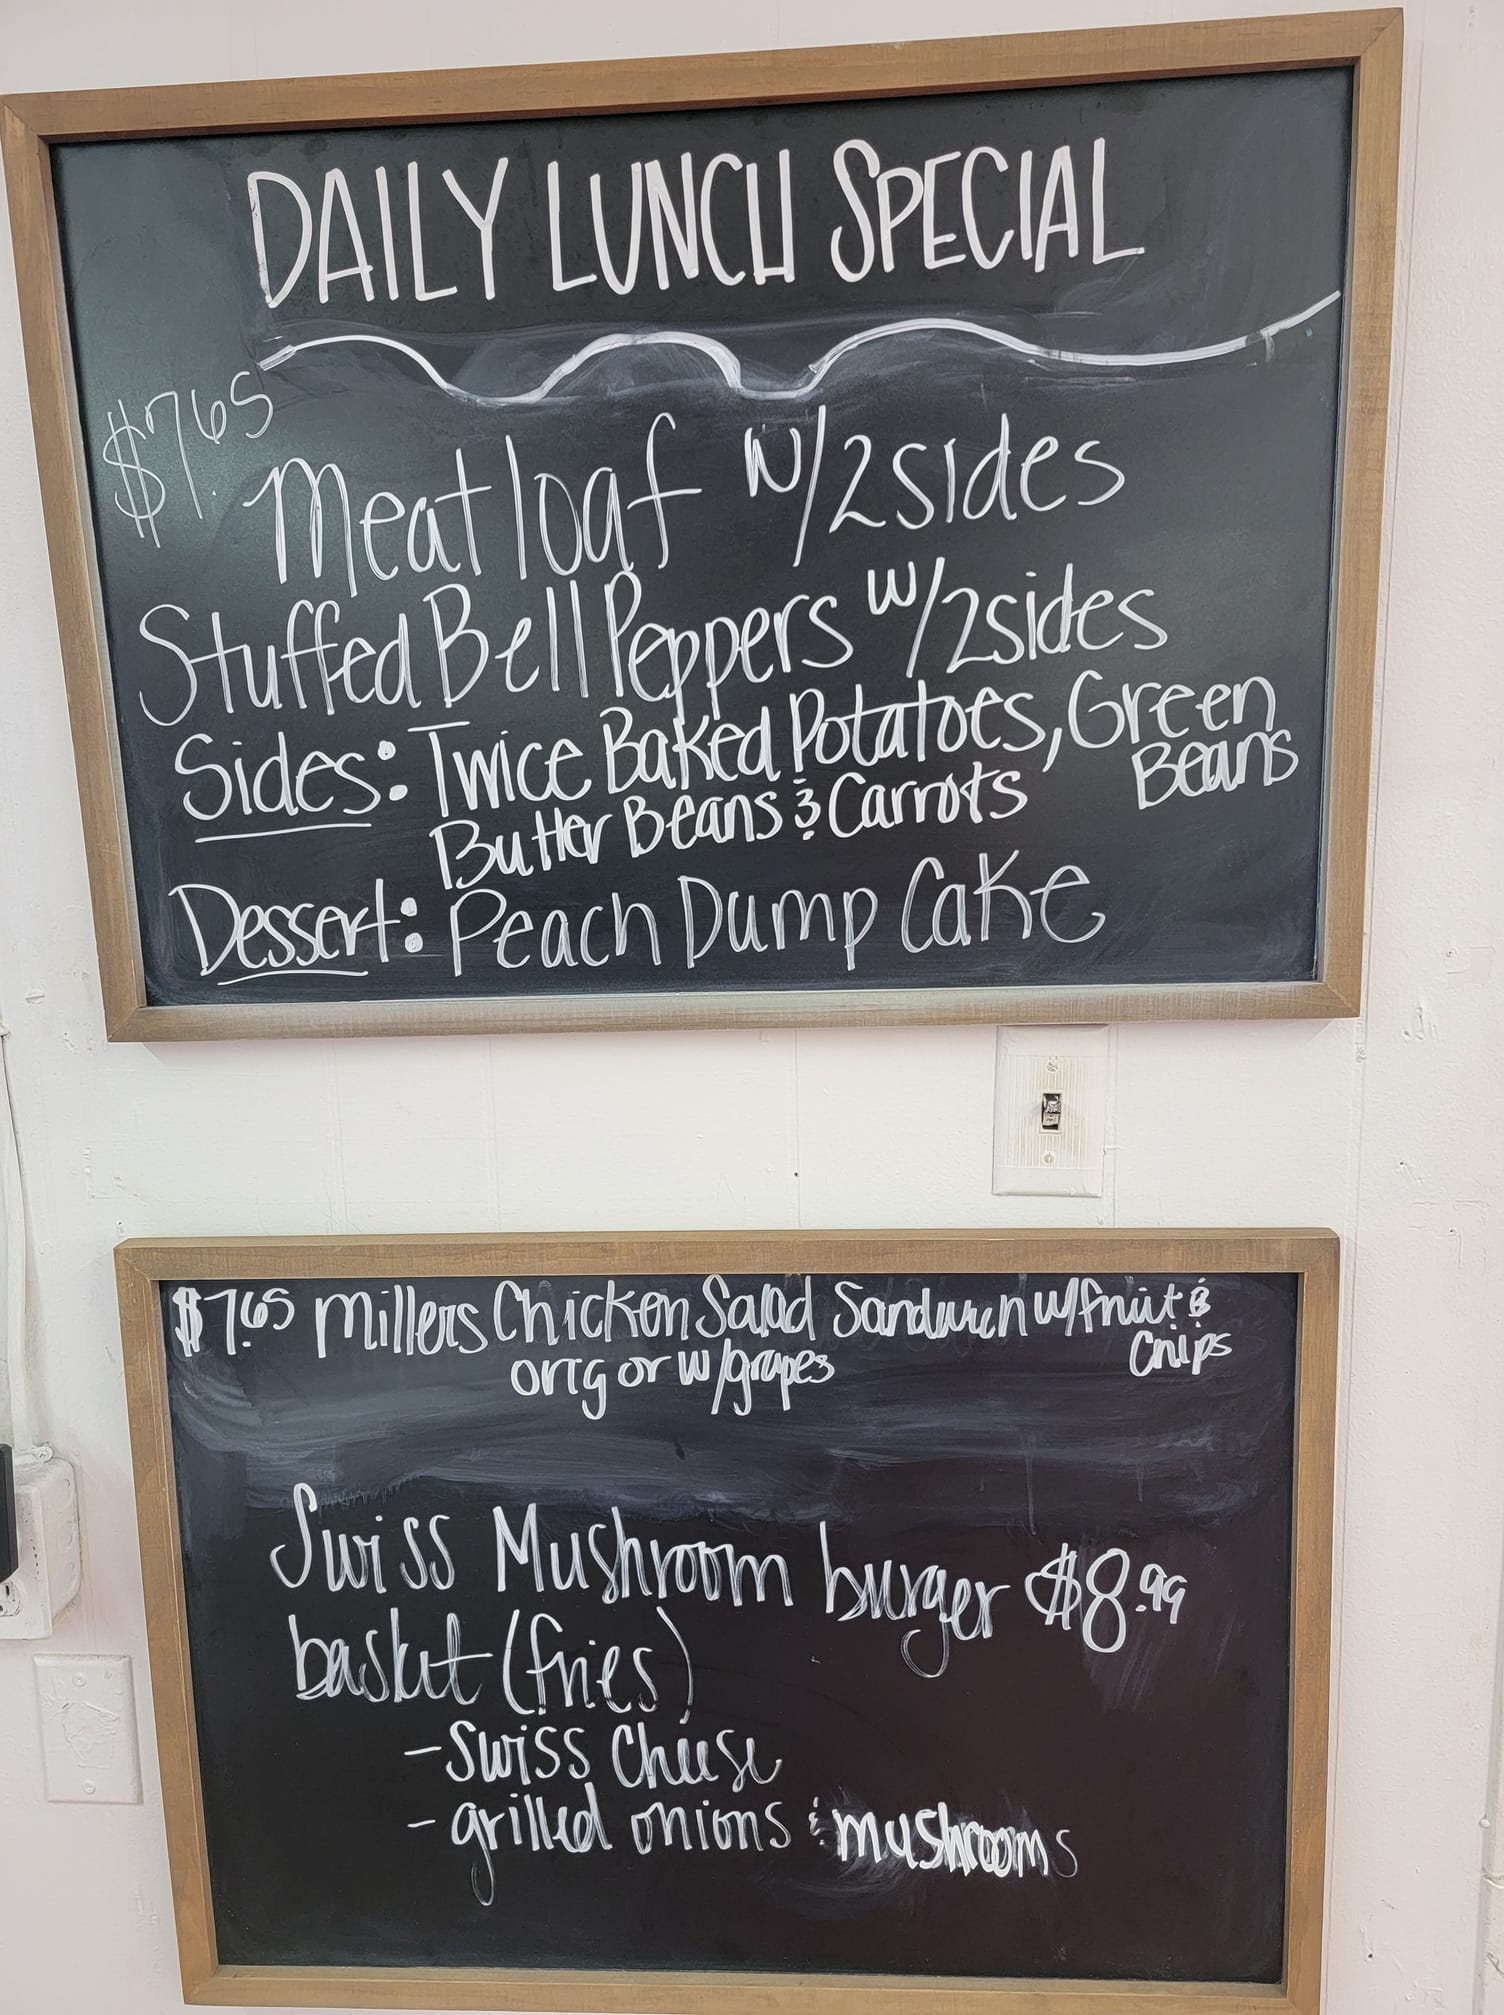 DAILY LUNCH SPECIAL
$7.65
Meatloaf w/2sides
Stuffed Bell Peppers w/2sides
Sides: Twice Baked Potatoes, Green
Beans
Butter Beans & Carrots
Dessert: Peach Dump Cake
$7.65 Millers Chicken Salad Sandwich w/fruit &
Chips
orig or w/grapes
Swiss Mushroom burger $8.99
basket (fries)
-Swiss Cheese
-grilled onions & mushrooms